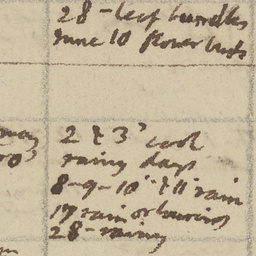 28 - leaf bundles
June 10 flower buds
may
2 & 3 cool
rainy days
8-9-10 " & 11 " rain
17 rain or louring
28 - rainy